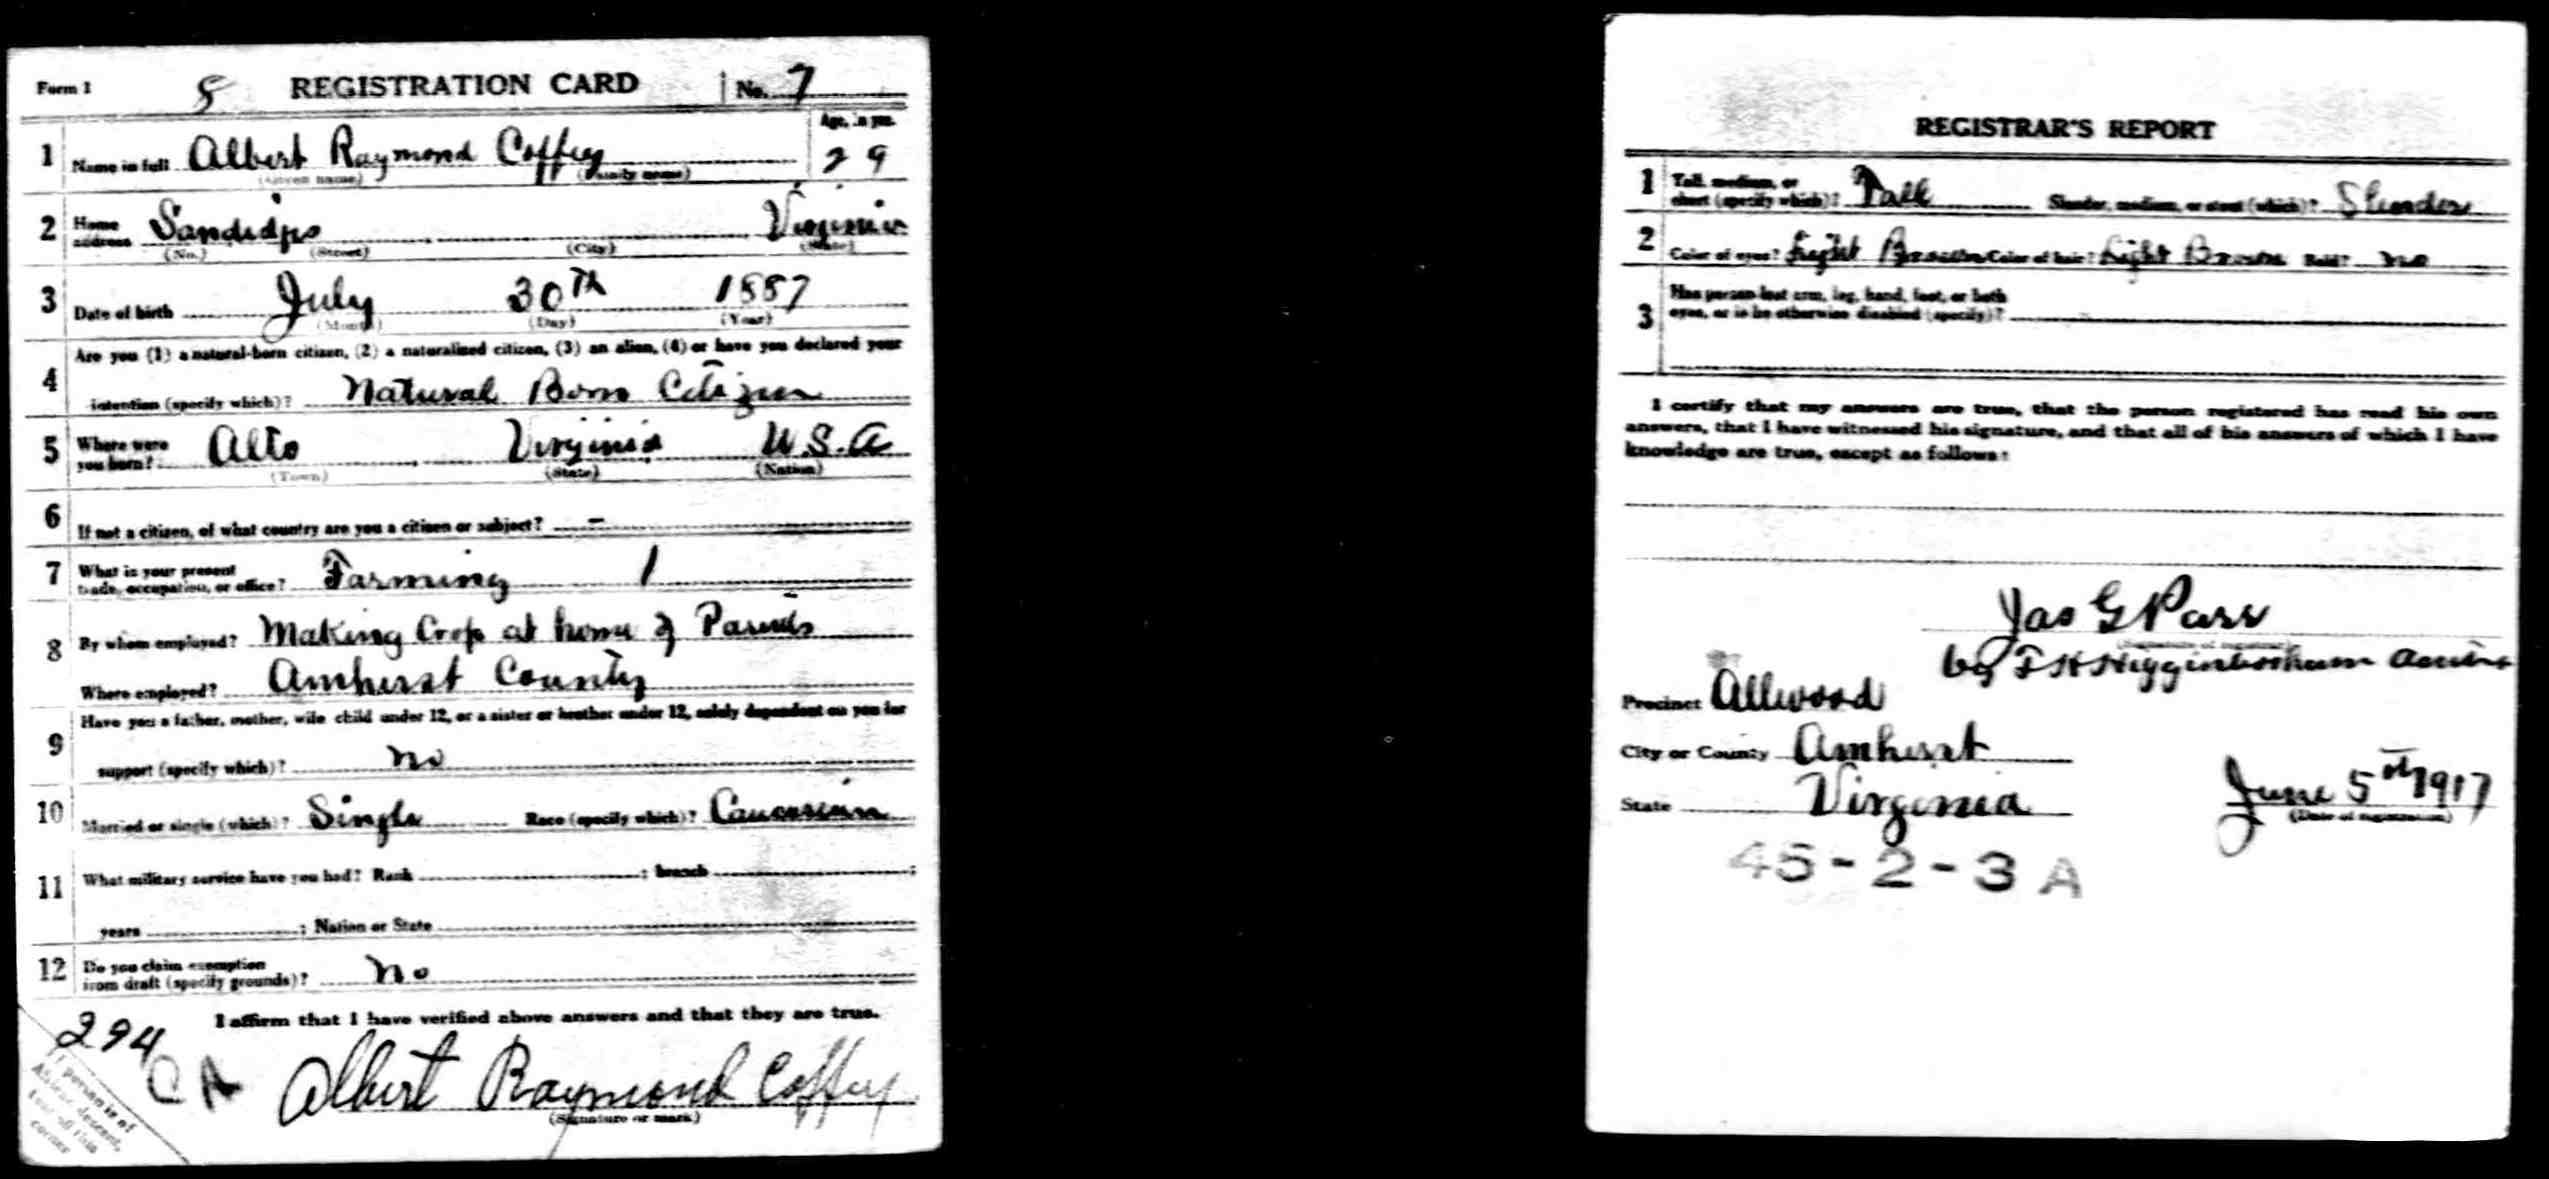 Form 1 8 REGISTRATION CARD No. 7
1 Name in full Albert Raymond Coffey Age, in yrs. 29
(Given name) (Family name)
2 Home address Sandidges Virginia
(No.) (Street) (City) (State)
3 Date of birth July 30th 1887
(Month) (Day) (Year)
Are you (1) a natural-born citizen, (2) a naturalized citizen, (3) an alien, (4) or have you declared your
4 intention (specify which)? Natural Born Citizen
5 Where were you born? Alto Virginia U.S.A
(Town) (State) (Nation)
6 If not a citizen, of what country are you a citizen or subject? -
7 What is your present trade, occupation, or office? Farming 1
8 By whom employed? Making Crop at home of Parents
Where employed? Amherst County
9 Have you a father, mother, wife child under 12, or a sister or brother under 12, solely dependent on you for
support (specify which)? no
10 Married or single (which)? Single Race (specify which)? Caucasian
11 What military service have you had? Rank ; branch ;
years ; Nation or State
12 Do you claim exemption from draft (specify grounds)? no
I affirm that I have verified above answers and that they are true.
294
C A
Albert Raymond Coffey
(Signature or mark)
If person is of
African descent,
tear off this
corner
REGISTRAR'S REPORT
1 Tall, medium, or short (specify which)? Tall Slender, medium, or stout (which)? Slender
2 Color of eyes? Light Brown Color of hair? Light Brown Bald? no
3 Has person lost arm, leg, hand, foot, or both
eyes, or is he otherwise disabled (specify)?
I certify that my answers are true, that the person registered has read his own
answers, that I have witnessed his signature, and that all of his answers of which I have
knowledge are true, except as follows:
Jas G Parr
(Signature of registrar)
by F H Higginbotham
Precinct Allwood
City or County Amherst
State Virginia
June 5th 1917
(Date of registration)
45-2-3 A